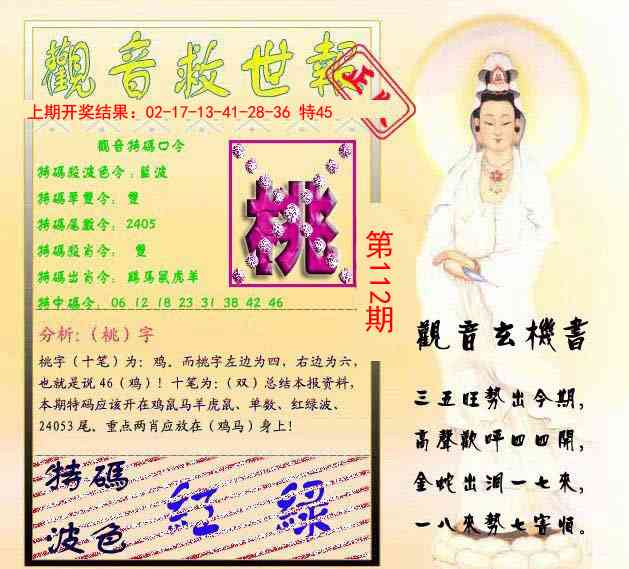 觀音救世報
上期开奖结果：02-17-13-41-28-36 特45
觀音特碼口令
特碼段波色令：藍波
特碼單雙令： 雙
特碼尾數令： 2405
特碼段肖令： 雙
特碼出肖令： 雞馬鼠虎羊
特中碼令： 06 12 18 23 31 38 42 46
桃
第112期
分析:（桃）字
桃字（十笔）为：鸡。而桃字左边为四，右边为六，
也就是说 46（鸡）！十笔为：（双）总结本报资料，
本期特码应该开在鸡鼠马羊虎鼠、单数、红绿波、
24053 尾、重点两肖应放在（鸡马）身上！
特碼
波色
紅 綠
觀音玄機書
三五旺勢出今期，
高聲歡呼四四開，
金蛇出洞一七來，
一八來勢七害順。